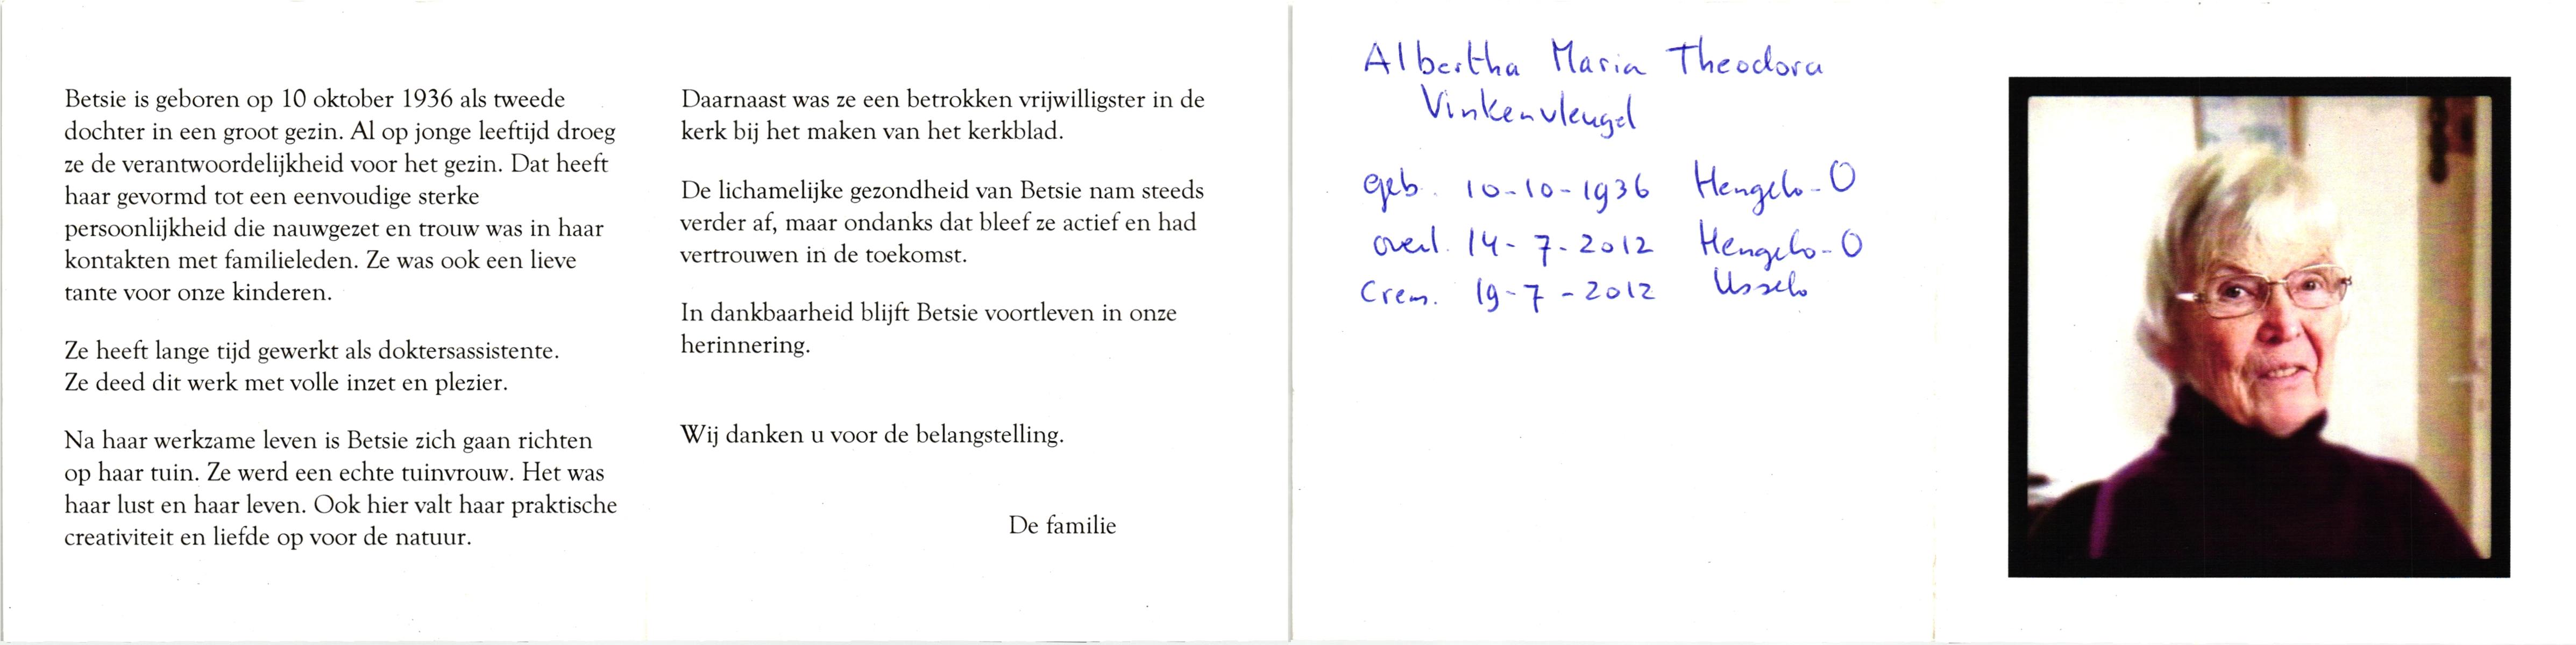 Betsie is geboren op 10 oktober 1936 als tweede
dochter in een groot gezin. Al op jonge leeftijd droeg
ze de verantwoordelijkheid voor het gezin. Dat heeft
haar gevormd tot een eenvoudige sterke
persoonlijkheid die nauwgezet en trouw was in haar
kontakten met familieleden. Ze was ook een lieve
tante voor onze kinderen.
Ze heeft lange tijd gewerkt als doktersassistente.
Ze deed dit werk met volle inzet en plezier.
Na haar werkzame leven is Betsie zich gaan richten
op haar tuin. Ze werd een echte tuinvrouw. Het was
haar lust en haar leven. Ook hier valt haar praktische
creativiteit en liefde op voor de natuur.
Daarnaast was ze een betrokken vrijwilligster in de
kerk bij het maken van het kerkblad.
De lichamelijke gezondheid van Betsie nam steeds
verder af, maar ondanks dat bleef ze actief en had
vertrouwen in de toekomst.
In dankbaarheid blijft Betsie voortleven in onze
herinnering.
Wij danken u voor de belangstelling.
De familie
Albertha Maria Theodora
Vinkenvleugel
geb. 10-10-1936 Hengelo-O
overl. 14-7-2012 Hengelo-O
Crem. 19-7-2012 Usselo